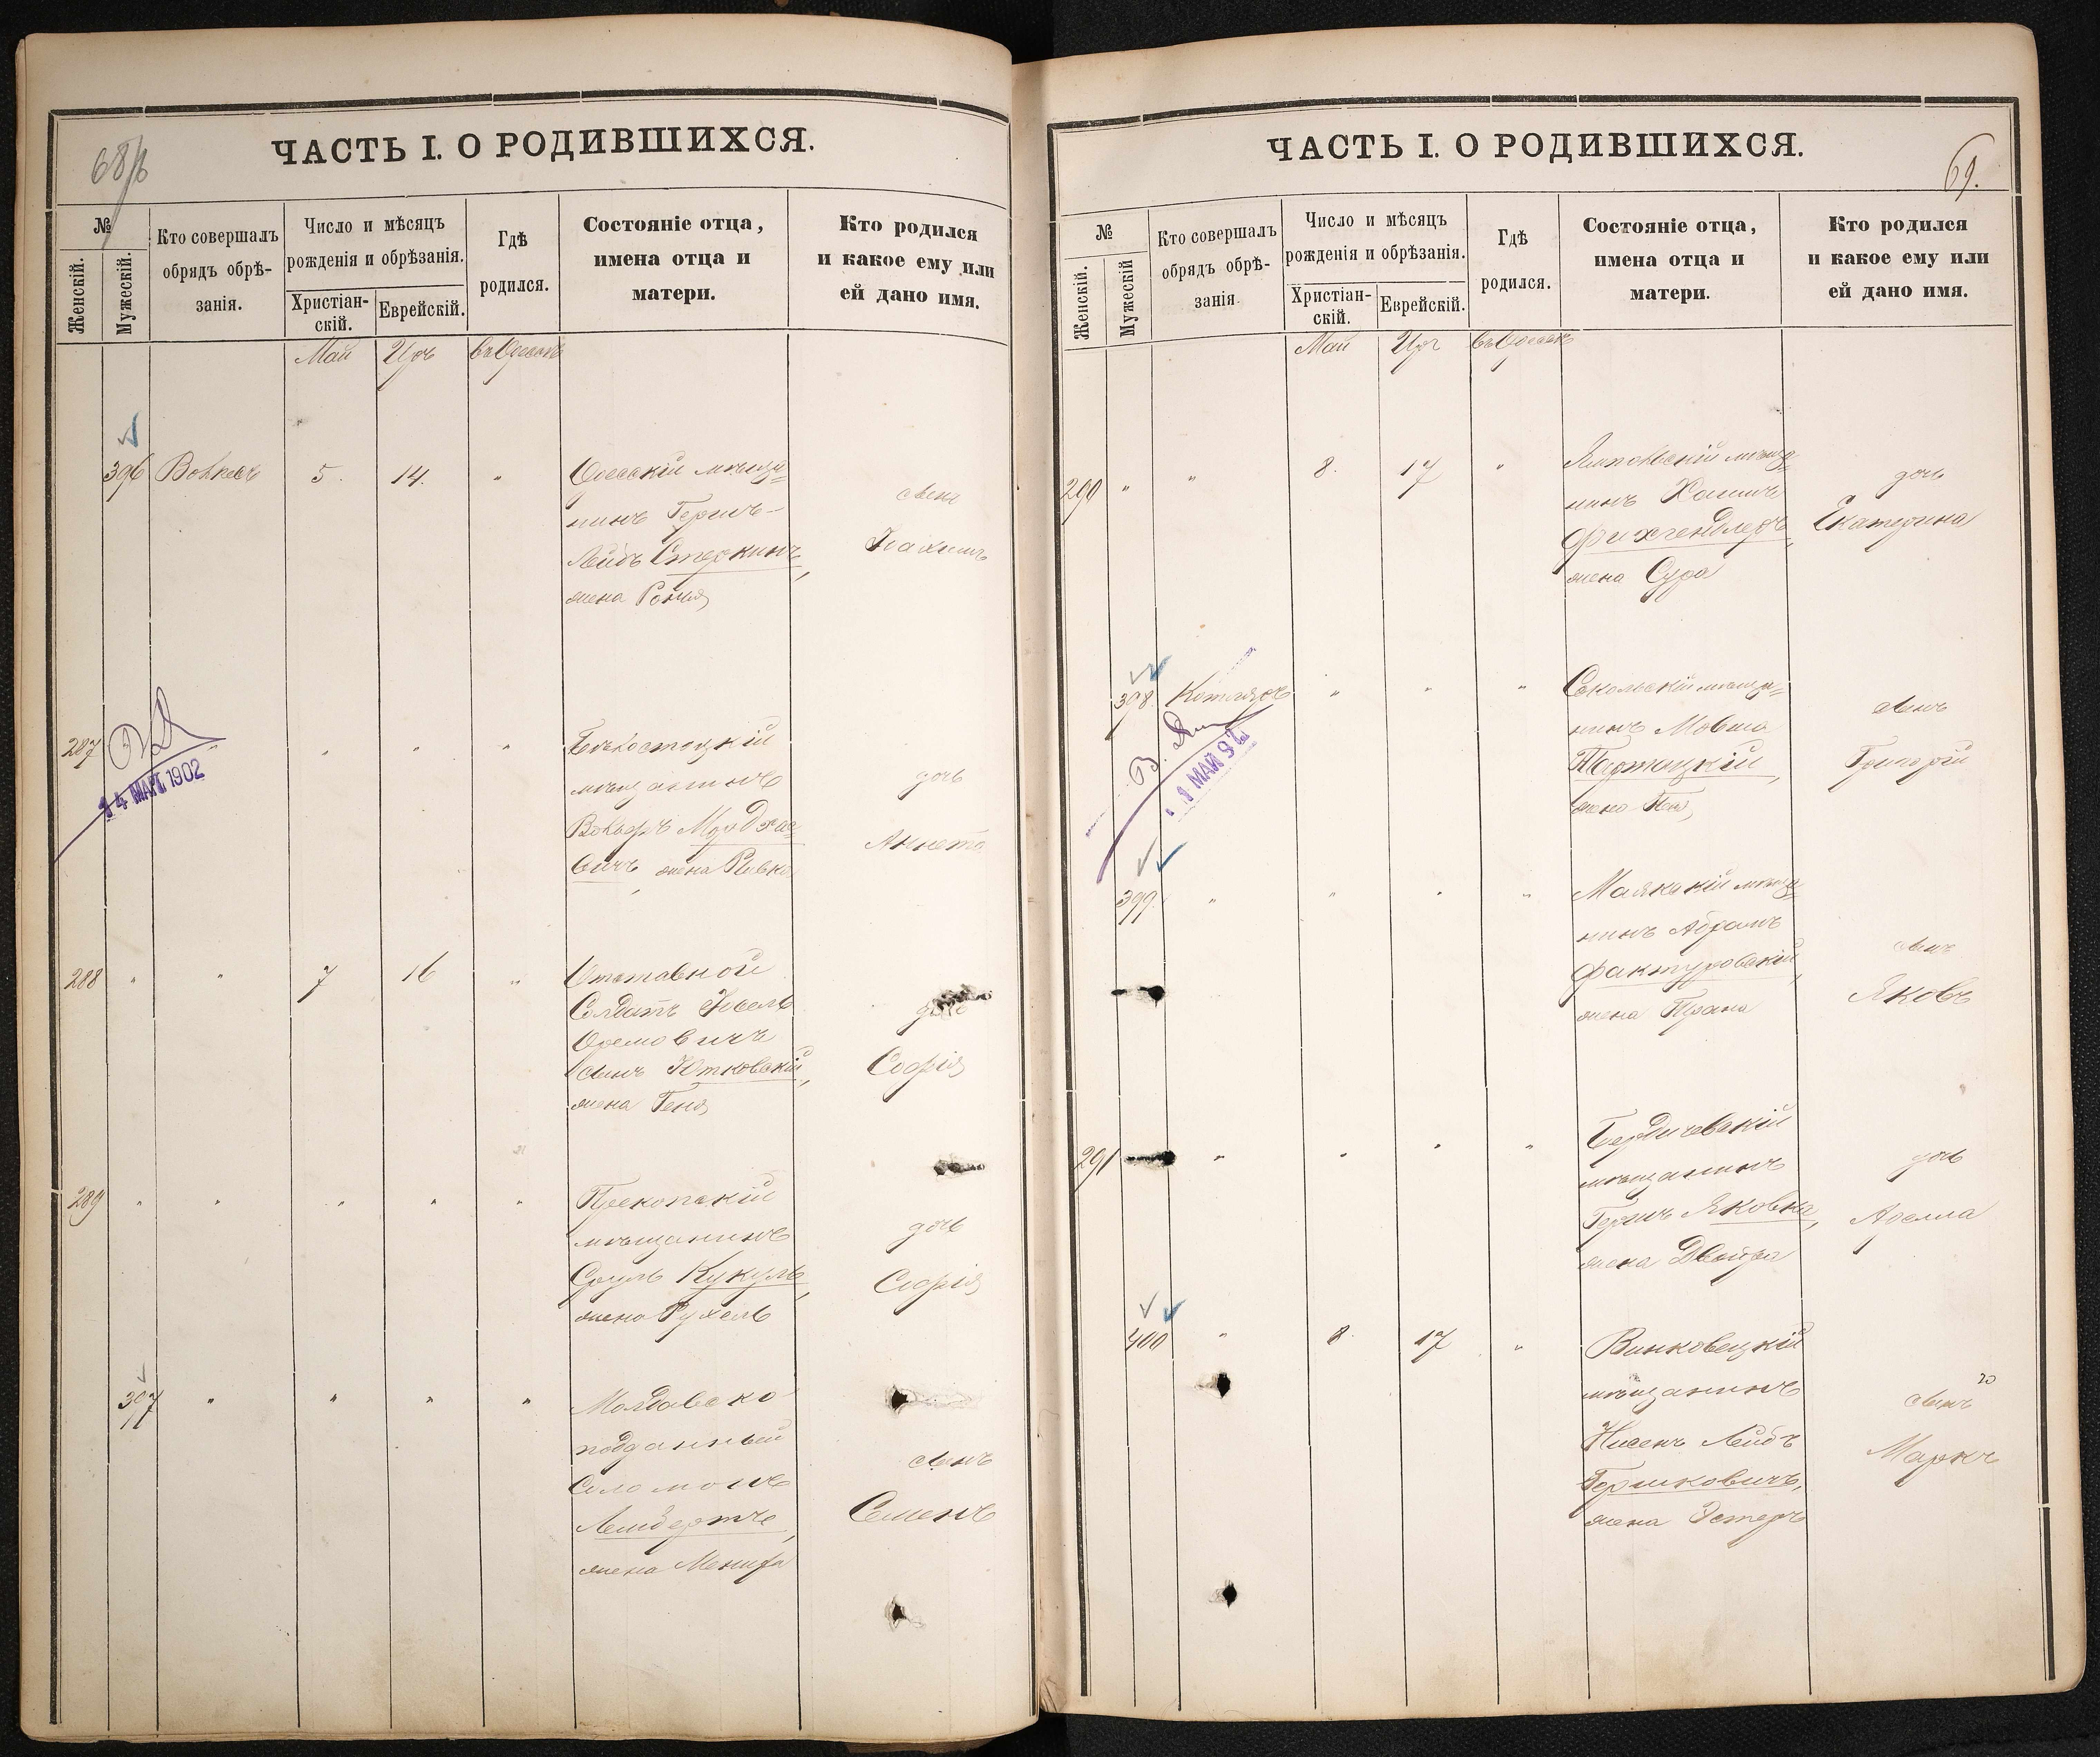 68/б
ЧАСТЬ I. О РОДИВШИХСЯ.
№
Женскій.
Мужескій.
Кто совершалъ
обрядъ обрѣ-
занія.
Число и мѣсяцъ
рожденія и обрѣзанія.
Христіан-
скій.
Еврейскій.
Гдѣ
родился.
Состояніе отца,
имена отца и
матери.
Кто родился
и какое ему или
ей дано имя.
Май Иръ въ Одессѣ
396 5. 14. "
Одесскій мѣща=
нинъ Гершъ-
Лейбъ Стеркинъ,
жена
сынъ
287 " " " "
14 МАЯ 1902
мѣщанинъ
жена Ривка
дочь
Аннета
288 " " 7 16 "
Отставной
Солдатъ Іосель
сынъ Ютковскій,
жена Геня
дочь
Софія
289 " " " " "
Прекопскій
мѣщанинъ
Сруль Кукуль,
жена Рухель
дочь
Софія
397 " " " "
Молдавско
подданный
Соломонъ
жена
сынъ
Семенъ
69.
ЧАСТЬ I. О РОДИВШИХСЯ.
№
Женскій.
Мужескій
Кто совершалъ
обрядъ обрѣ-
занія.
Число и мѣсяцъ
рожденія и обрѣзанія.
Христіан-
скій.
Еврейскій.
Гдѣ
родился.
Состояніе отца,
имена отца и
матери.
Кто родился
и какое ему или
ей дано имя.
Май Иръ въ Одессѣ
290 " " 8. 17 "
Ямпольскій мѣща=
нинъ Хаимъ
Фихгендлеръ,
жена Сура
дочь
Екатерина
398. Котляръ " " "
Сокольскій мѣща=
нинъ Мовша
жена
сынъ
Григорій
МАЙ 9
399. " " " "
Маякскій мѣща=
нинъ Абрамъ
Фактуровскій,
жена
сынъ
Яковъ
291 " " " "
Бердичевскій
мѣщанинъ
Гершъ Яковка,
жена Двойра
дочь
Аделла
400 " 8. 17 "
Винковецкій
мѣщанинъ
Нисенъ Лейбъ
Гершковичъ,
жена Эстеръ
20
сынъ
Маркъ